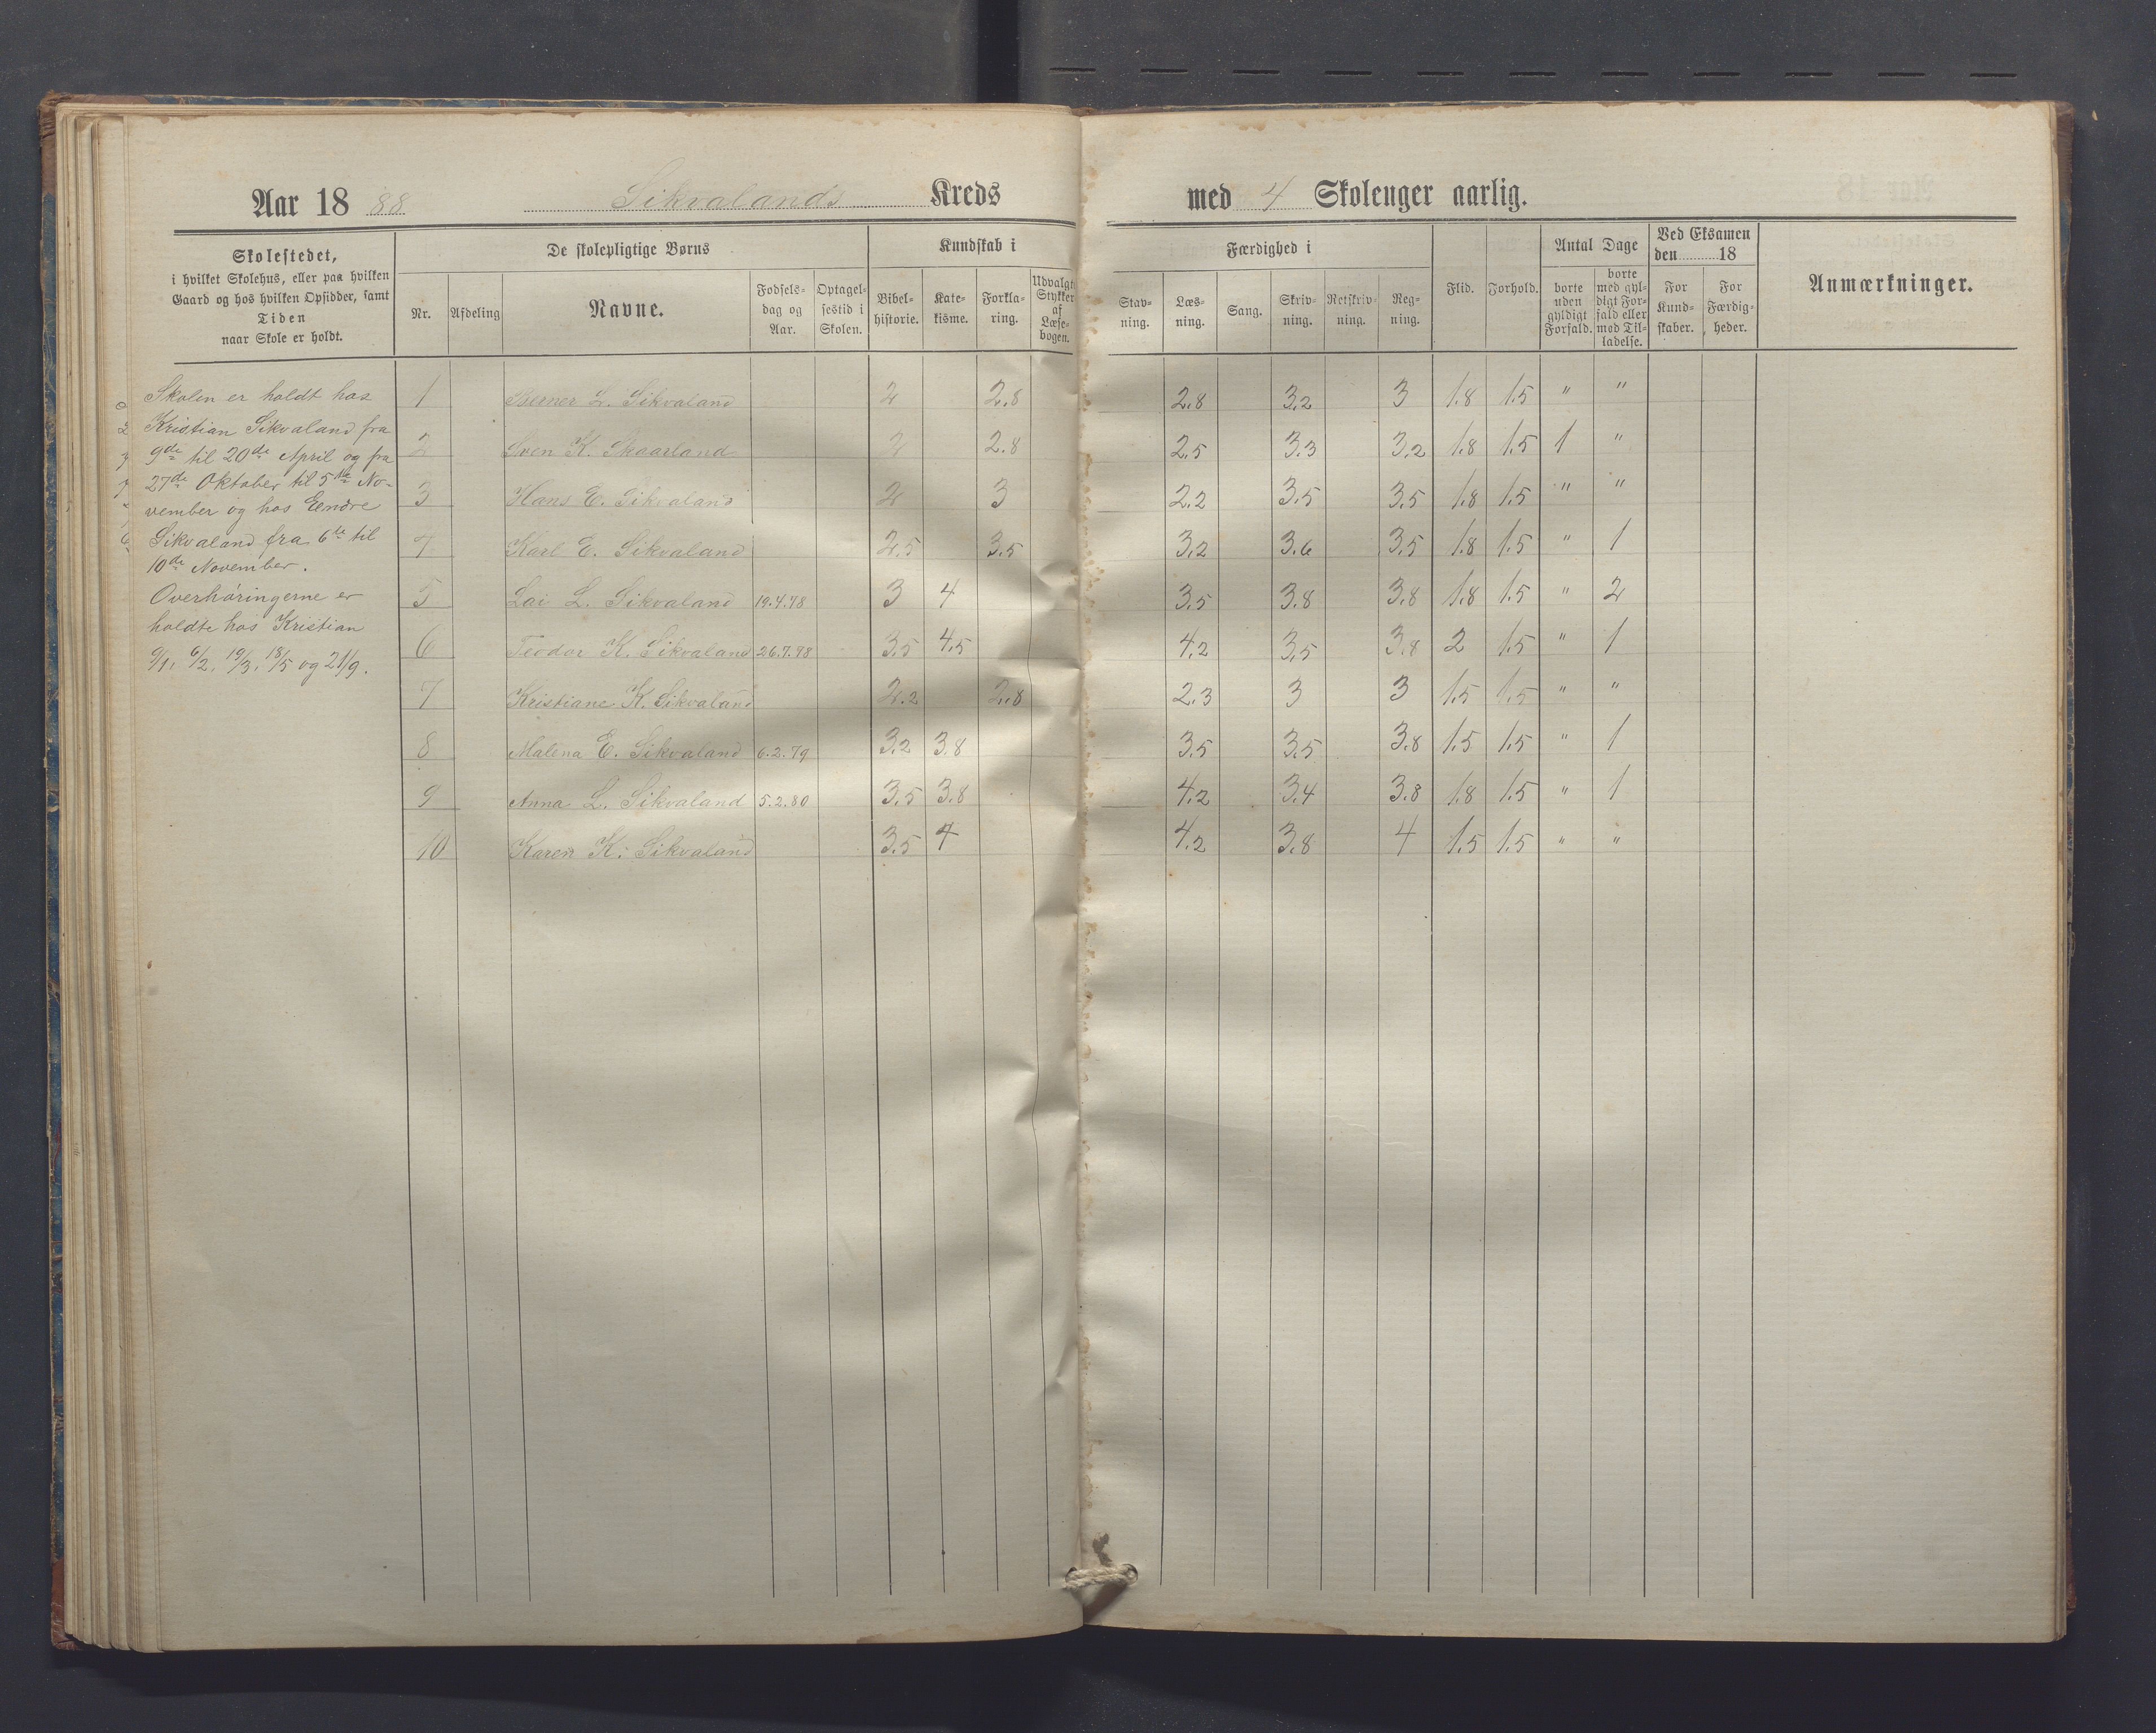 Aar 1888 Sikvalands Kreds med 4 Skoleuger aarlig.
Skolestedet,
i hvilket Skolehus, eller paa hvilken
Gaard og hos hvilken Opsidder, samt
Tiden
naar Skole er holdt.
De skolepligtige Børns
Nr.
Afdeling
Navne.
Fødsels-
dag og
Aar.
Optagel-
sestid i
Skolen.
Kundskab i
Bibel-
historie.
Kate-
kisme.
Forkla-
ring.
Udvalgte
Stykker
af
Læse-
bogen.
Færdighed i
Stav-
ning.
Læs-
ning.
Sang.
Skriv-
ning.
Retskriv-
ning.
Reg-
ning.
Flid.
Forhold.
Antal Dage
borte
uden
gyldigt
Forfald.
borte
med gyl-
digt For-
fald eller
med Til-
ladelse.
Ved Eksamen
den 18
For
Kund-
skaber.
For
Færdig-
heder.
Anmærkninger.
Skolen er holdt hos
Kristian Sikvaland fra
9de til 20de April og fra
27de Oktober til 5te No-
vember og hos Eendre
Sikvaland fra 6te til
10de November.
Overhøringerne er
holdte hos Kristian
9/1, 6/2, 19/3, 18/5 og 21/9.
1 L. Sikvaland 2 2.8 2.8 3.2 3 1.8 1.5 " "
2 Sven K. Skaarland 2 2.8 2.5 3.3 3.2 1.8 1.5 1 "
3 Hans E. Sikvaland 2 3 2.2 3.5 3.5 1.8 1.5 " "
4 Karl E. Sikvaland 2.5 3.5 3.2 3.6 3.5 1.8 1.5 " 1
5 Lai L. Sikvaland 19.4.78 3 4 3.5 3.8 3.8 1.8 1.5 " 2
6 Teodor K. Sikvaland 26.7.78 3.5 4.5 4.2 3.5 3.8 2 1.5 " 1
7 Kristiane K. Sikvaland 2.2 2.8 2.3 3 3 1.5 1.5 " "
8 Malena E. Sikvaland 6.2.79 3.2 3.8 3.5 3.5 3.8 1.5 1.5 " 1
9 Anna L. Sikvaland 5.2.80 3.5 3.8 4.2 3.4 3.8 1.8 1.5 " 1
10 Karen K. Sikvaland 3.5 4 4.2 3.8 4 1.5 1.5 " "